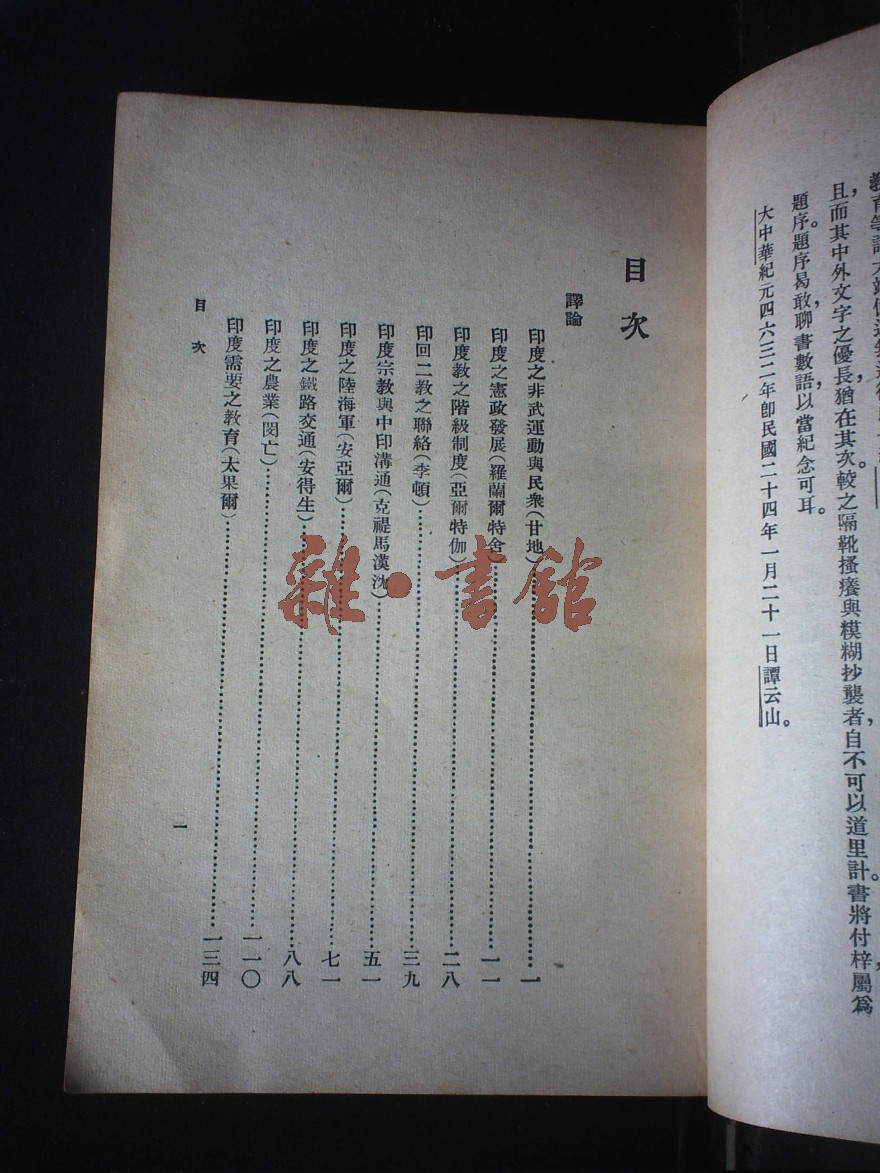 且而其中外文字之優長，猶在其次。較之隔靴搔癢與模糊抄襲者，自不可以道里計。書將付梓，屬爲
題序。題序曷敢，聊書數語，以當紀念可耳。
大中華紀元四六三二年卽民國二十四年一月二十一日譚云山。
目次
譯論
印度之非武運動與民衆（甘地）……一
印度之憲政發展（羅蘭爾特舍）……一一
印度教之階級制度（亞爾特伽）……二八
印回二教之聯絡（李頓）……三九
印度宗教與中印溝通（克禔馬漢沈）……五一
印度之陸海軍（安亞爾）……七一
印度之鐵路交通（安得生）……八八
印度之農業（閔亡）……一一〇
印度需要之教育（太果爾）……一三四
目次
一
雜·書館